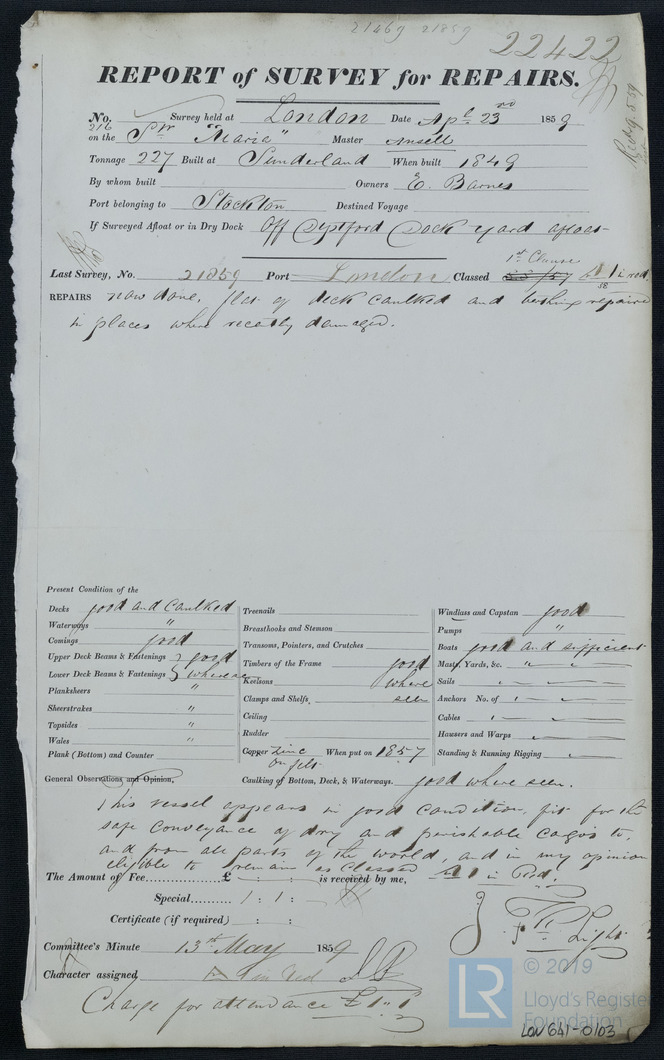 21469 21859
22422
REPORT of SURVEY for REPAIRS.
No. 216 Survey held at London Date Apl 23rd 1859
on the Str "Maria" Master Ansell
Tonnage 227 Built at Sunderland When built 1849
By whom built Owners E. Barnes
Port belonging to Stockton Destined Voyage
If Surveyed Afloat or in Dry Dock Off Deptford Dock yard afloat
1st Clause
Last Survey, No. 21859 Port London Classed 1 in red
58
REPAIRS now done, flat of deck caulked and repaired
in places where recently damaged.
Present Condition of the
Decks good and Caulked
Waterways "
Comings good
Upper Deck Beams & Fastenings } good
Lower Deck Beams & Fastenings } where seen
Planksheers "
Sheerstrakes "
Topsides "
Wales "
Plank (Bottom) and Counter
Treenails
Breasthooks and Stemson
Transoms, Pointers, and Crutches
Timbers of the Frame good
Keelsons where
Clamps and Shelfs seen
Ceiling
Rudder
Copper Zinc When put on 1857
on felt
Caulking of Bottom, Deck, & Waterways. good where seen.
Windlass and Capstan good
Pumps "
Boats good and sufficient
Masts, Yards, &c. " "
Sails
Anchors No. of
Cables
Hawsers and Warps
Standing & Running Rigging
General Observations and Opinion,
This vessel appears in good condition, fit for the
safe conveyance of dry and perishable cargos to,
and from all parts of the world, and in my opinion
eligible to remain as Classed 1 in Red.
The Amount of Fee £ : : is received by me,
Special 1 : 1 :
Certificate (if required) : :
Light
Committee's Minute 13th May 1859
Character assigned 1 in Red
Charge for attendance £1.1
LR © 2019
Lloyd's Register
Foundation
LON 641-0103